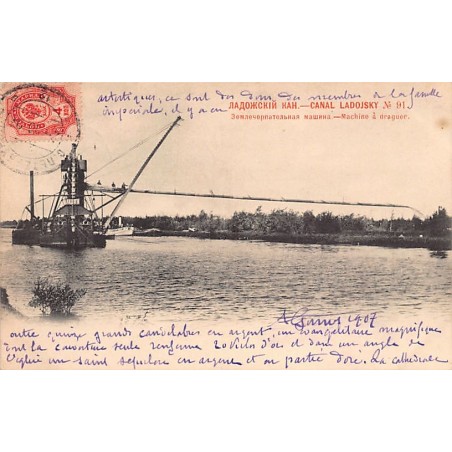 artistiques, ce sont des dons, des membres de la famille
impériale, il y a en
ЛАДОЖСКІЙ КАН.—CANAL LADOJSKY № 91
Землечерпательная машина.—Machine à draguer.
1907
outre quinze grands candelabres en argent, un évangéliaire magnifique
dont la couverture seule renferme 20 kilos d'or et dans un angle de
l'église un saint sepulcre en argent et en partie doré. La cathédrale